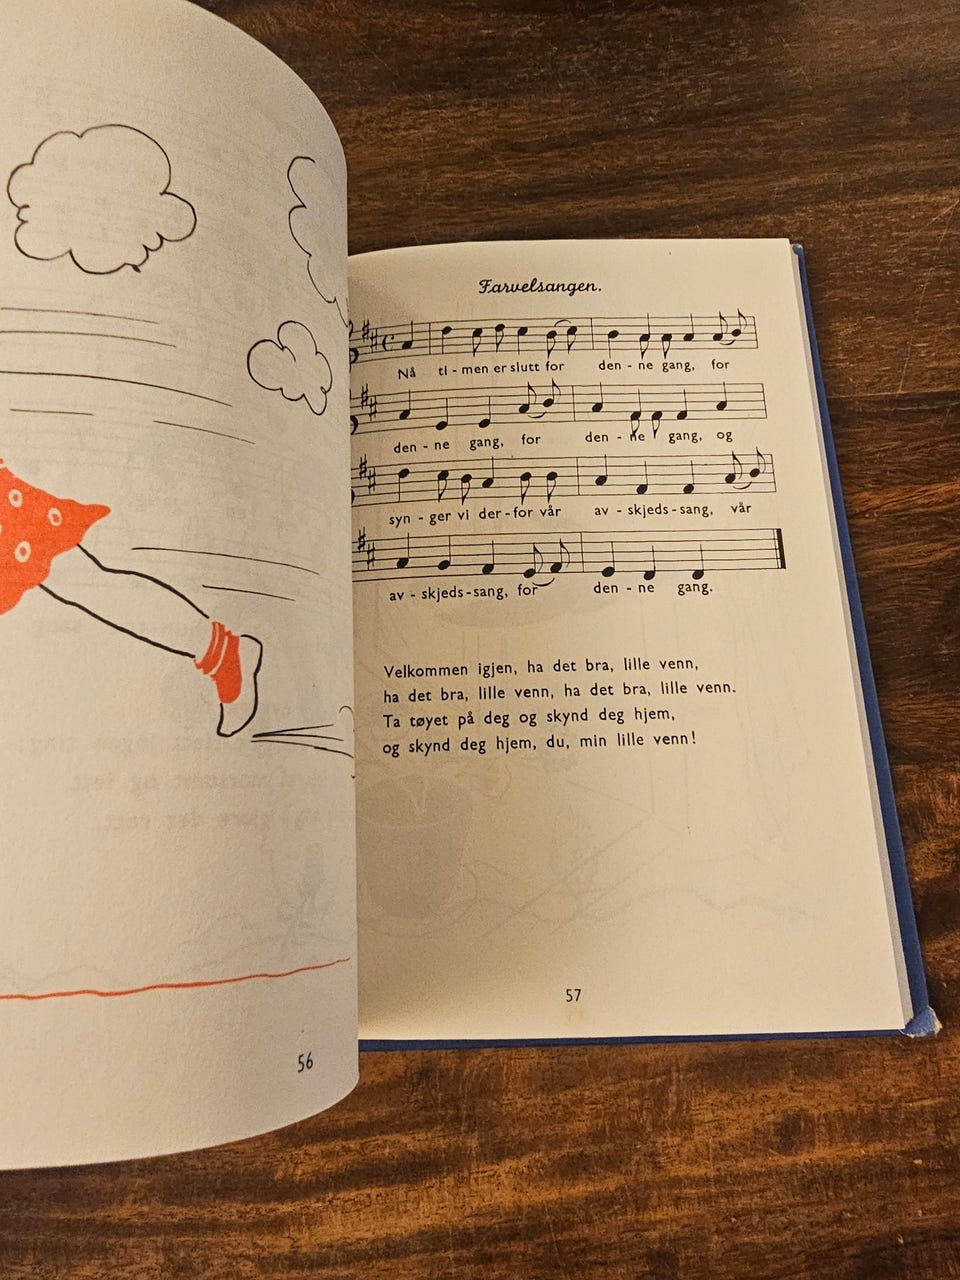 56
Farvelsangen.
Nå ti - men er slutt for den - ne gang, for
den - ne gang, for den - ne gang, og
syn - ger vi der - for vår av - skjeds - sang, vår
av - skjeds - sang, for den - ne gang.
Velkommen igjen, ha det bra, lille venn,
ha det bra, lille venn, ha det bra, lille venn.
Ta tøyet på deg og skynd deg hjem,
og skynd deg hjem, du, min lille venn!
57